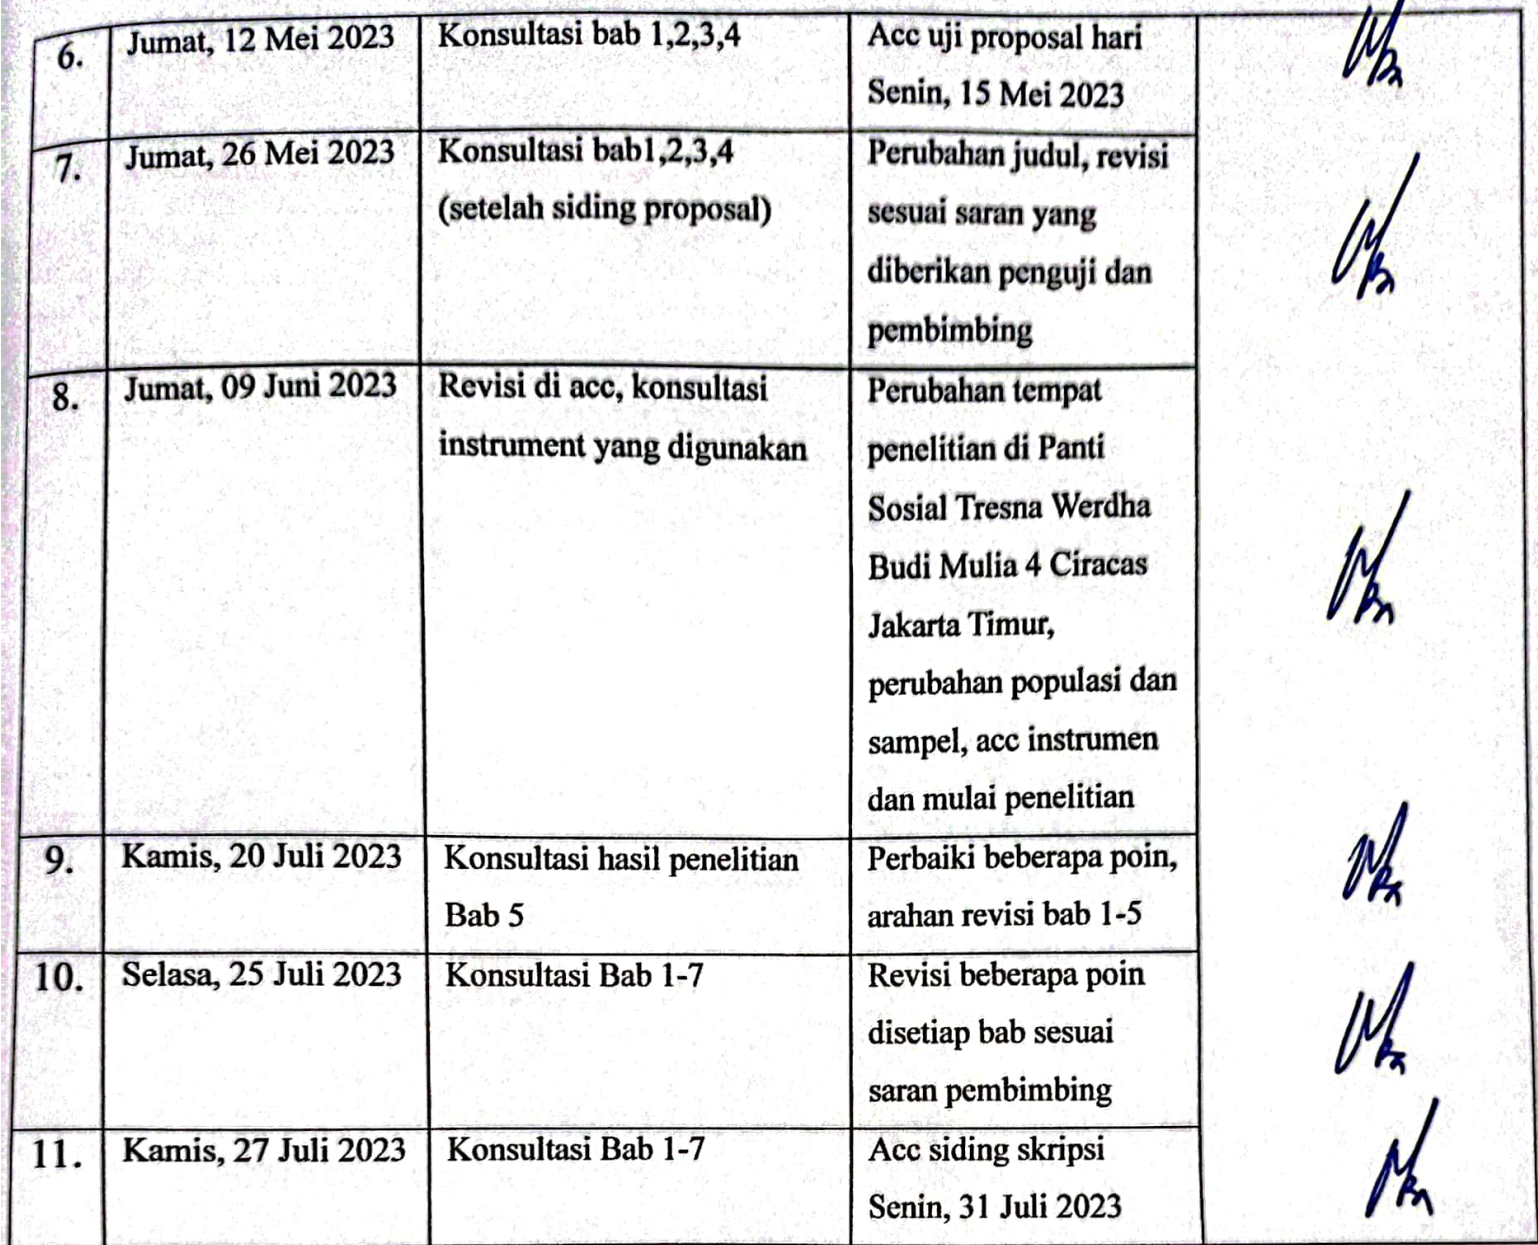 6. Jumat, 12 Mei 2023 Konsultasi bab 1,2,3,4 Acc uji proposal hari
Senin, 15 Mei 2023
7. Jumat, 26 Mei 2023 Konsultasi bab1,2,3,4 Perubahan judul, revisi
(setelah siding proposal) sesuai saran yang
diberikan penguji dan
pembimbing
8. Jumat, 09 Juni 2023 Revisi di acc, konsultasi Perubahan tempat
instrument yang digunakan penelitian di Panti
Sosial Tresna Werdha
Budi Mulia 4 Ciracas
Jakarta Timur,
perubahan populasi dan
sampel, acc instrumen
dan mulai penelitian
9. Kamis, 20 Juli 2023 Konsultasi hasil penelitian Perbaiki beberapa poin,
Bab 5 arahan revisi bab 1-5
10. Selasa, 25 Juli 2023 Konsultasi Bab 1-7 Revisi beberapa poin
disetiap bab sesuai
saran pembimbing
11. Kamis, 27 Juli 2023 Konsultasi Bab 1-7 Acc siding skripsi
Senin, 31 Juli 2023